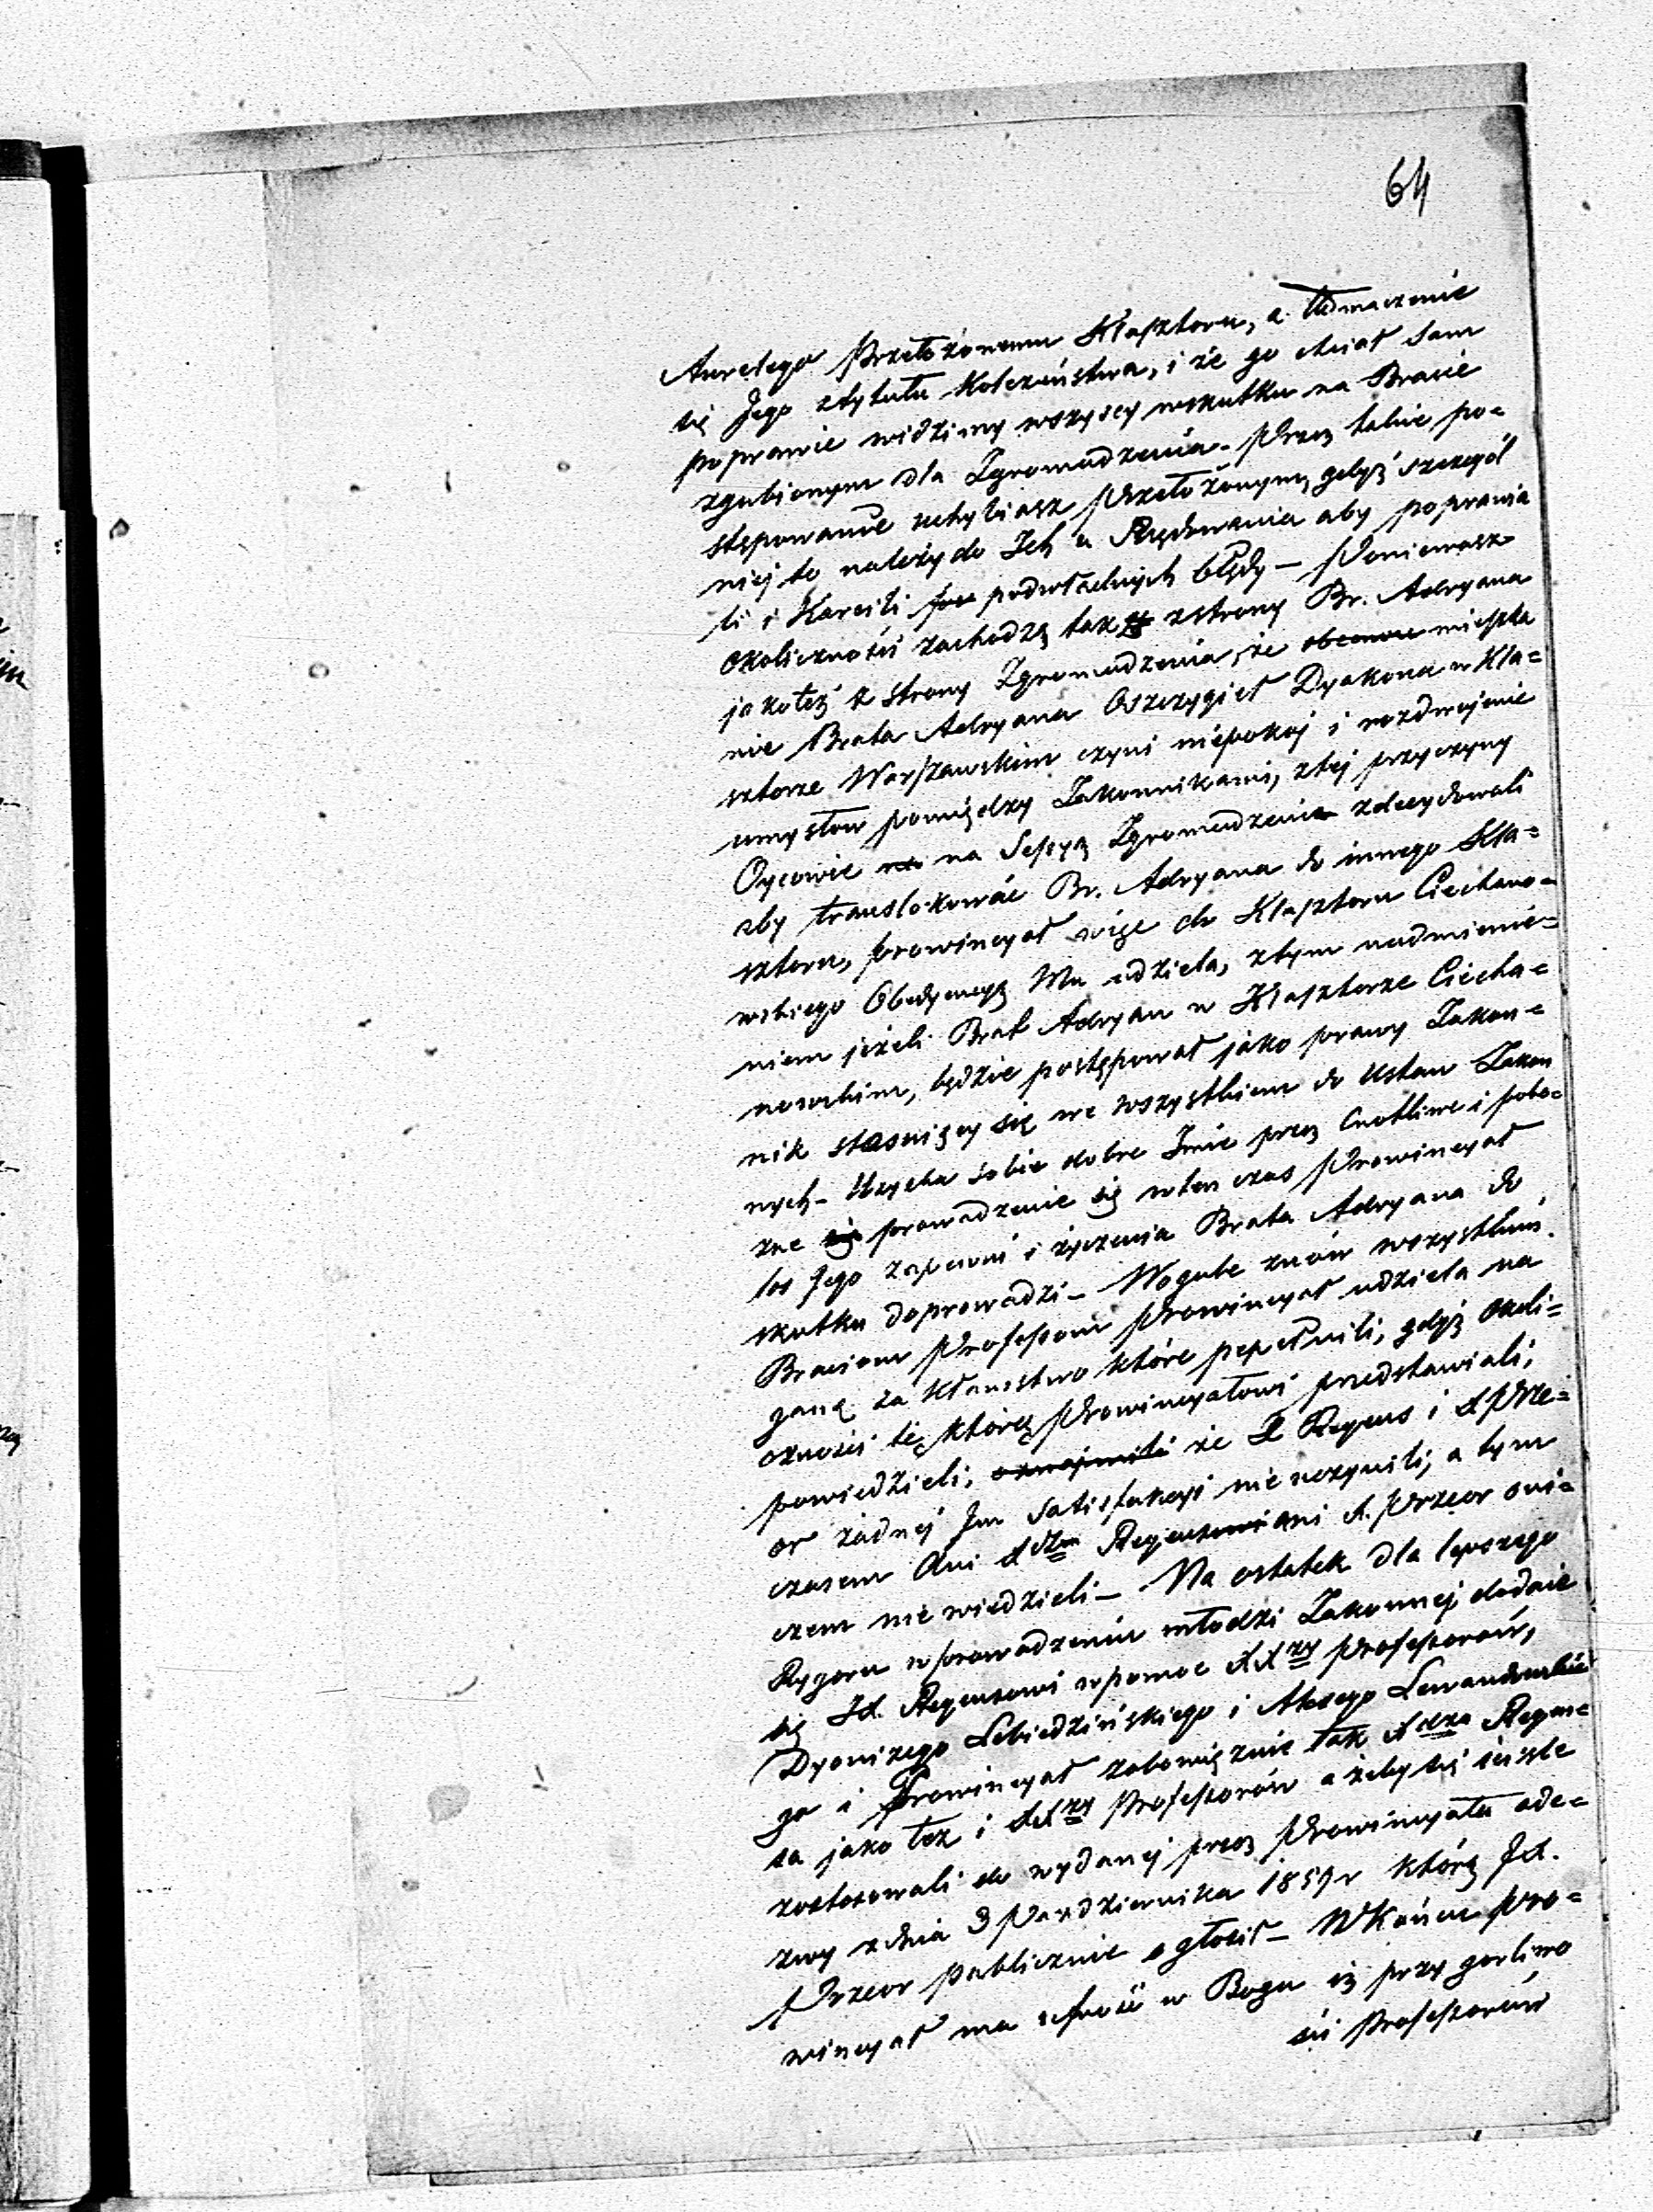 64
Aurelego Przełożonemu Klasztoru, a tłómaczenie
się Jego z tytułu Koleżeństwa, i że go chciał sam
poprawić widzimy wszyscy w skutku na Bracie
zgubionym dla Zgromadzenia. Przez takie po=
stępowanie uchybiasz Przełożonym, gdyż szczegól
niej to należy do Ich u Rządowania aby poprawia
li i Karcili podwładnych błędy — Ponieważ
okoliczności zachodzą tak z strony Br. Adryana
jakoteż z strony Zgromadzenia, że obecnone mieszka
nie Brata Adryana Oszczygieł Dyakona w Kla=
sztorze Warszawskim czyni niepokój i rozdwojenie
umysłow pomiędzy Zakonnikami, ztej przyczyny
Oycowie na na Sessyą Zgromadzenia zdecydowali
aby translokować Br. Adryana do innego Kla=
sztoru, prowincyał więc do Klasztoru Ciechano=
wskiego Obedyencyą Mu udziela, z tym nadmienie=
niem jeżeli Brat Adryan w Klasztorze Ciecha=
nowskim, będzie postępował jako prawy Zakon=
nik stosuiący się we wszystkiem do Ustaw Zakon
nych — Uzyska sobie dobre Imie przez Cnotliwe i pobo=
żne się prowadzenie się wten czas Prowincyał
los Jego zapewni i życzenia Brata Adryana do
skutku doprowadzi — Wogule znów wszystkim
Braciom Professom Prowincyał udziela na
ganę za kłamstwo które popełnili, gdyż okoli=
czności tę którą Prowincyałowi przedstawiali,
powiedzieli, oznajmili że X Regens i X Prze=
or żadnej Im Satisfakcyi nie uczynili, a tym
czasem Ani Xdzm Regensowi ani X. Przeor oni=
czem nie wiedzieli — Na ostatek dla lepszego
Rygoru w prowadzeniu młodzi Zakonnej dodaie
się Jx. Regensowi w pomoc XXzy Professorów,
Dyonizego Lebiedzińskiego i Alexego Lewandowskie
go i Prowincyał zobowięzuie tak Xdza Regen=
sa jako też i XXzy Professorów ażeby się ściśle
zostosowali do wydanej przez Prowincyała ode=
zwy z dnia 3 Pazdziernika 1859 r którą Jx.
Przeor publicznie ogłosił — W Końcu Pro=
wincyał ma ufność w Bogu iż przy gorliwo
ści Professorów